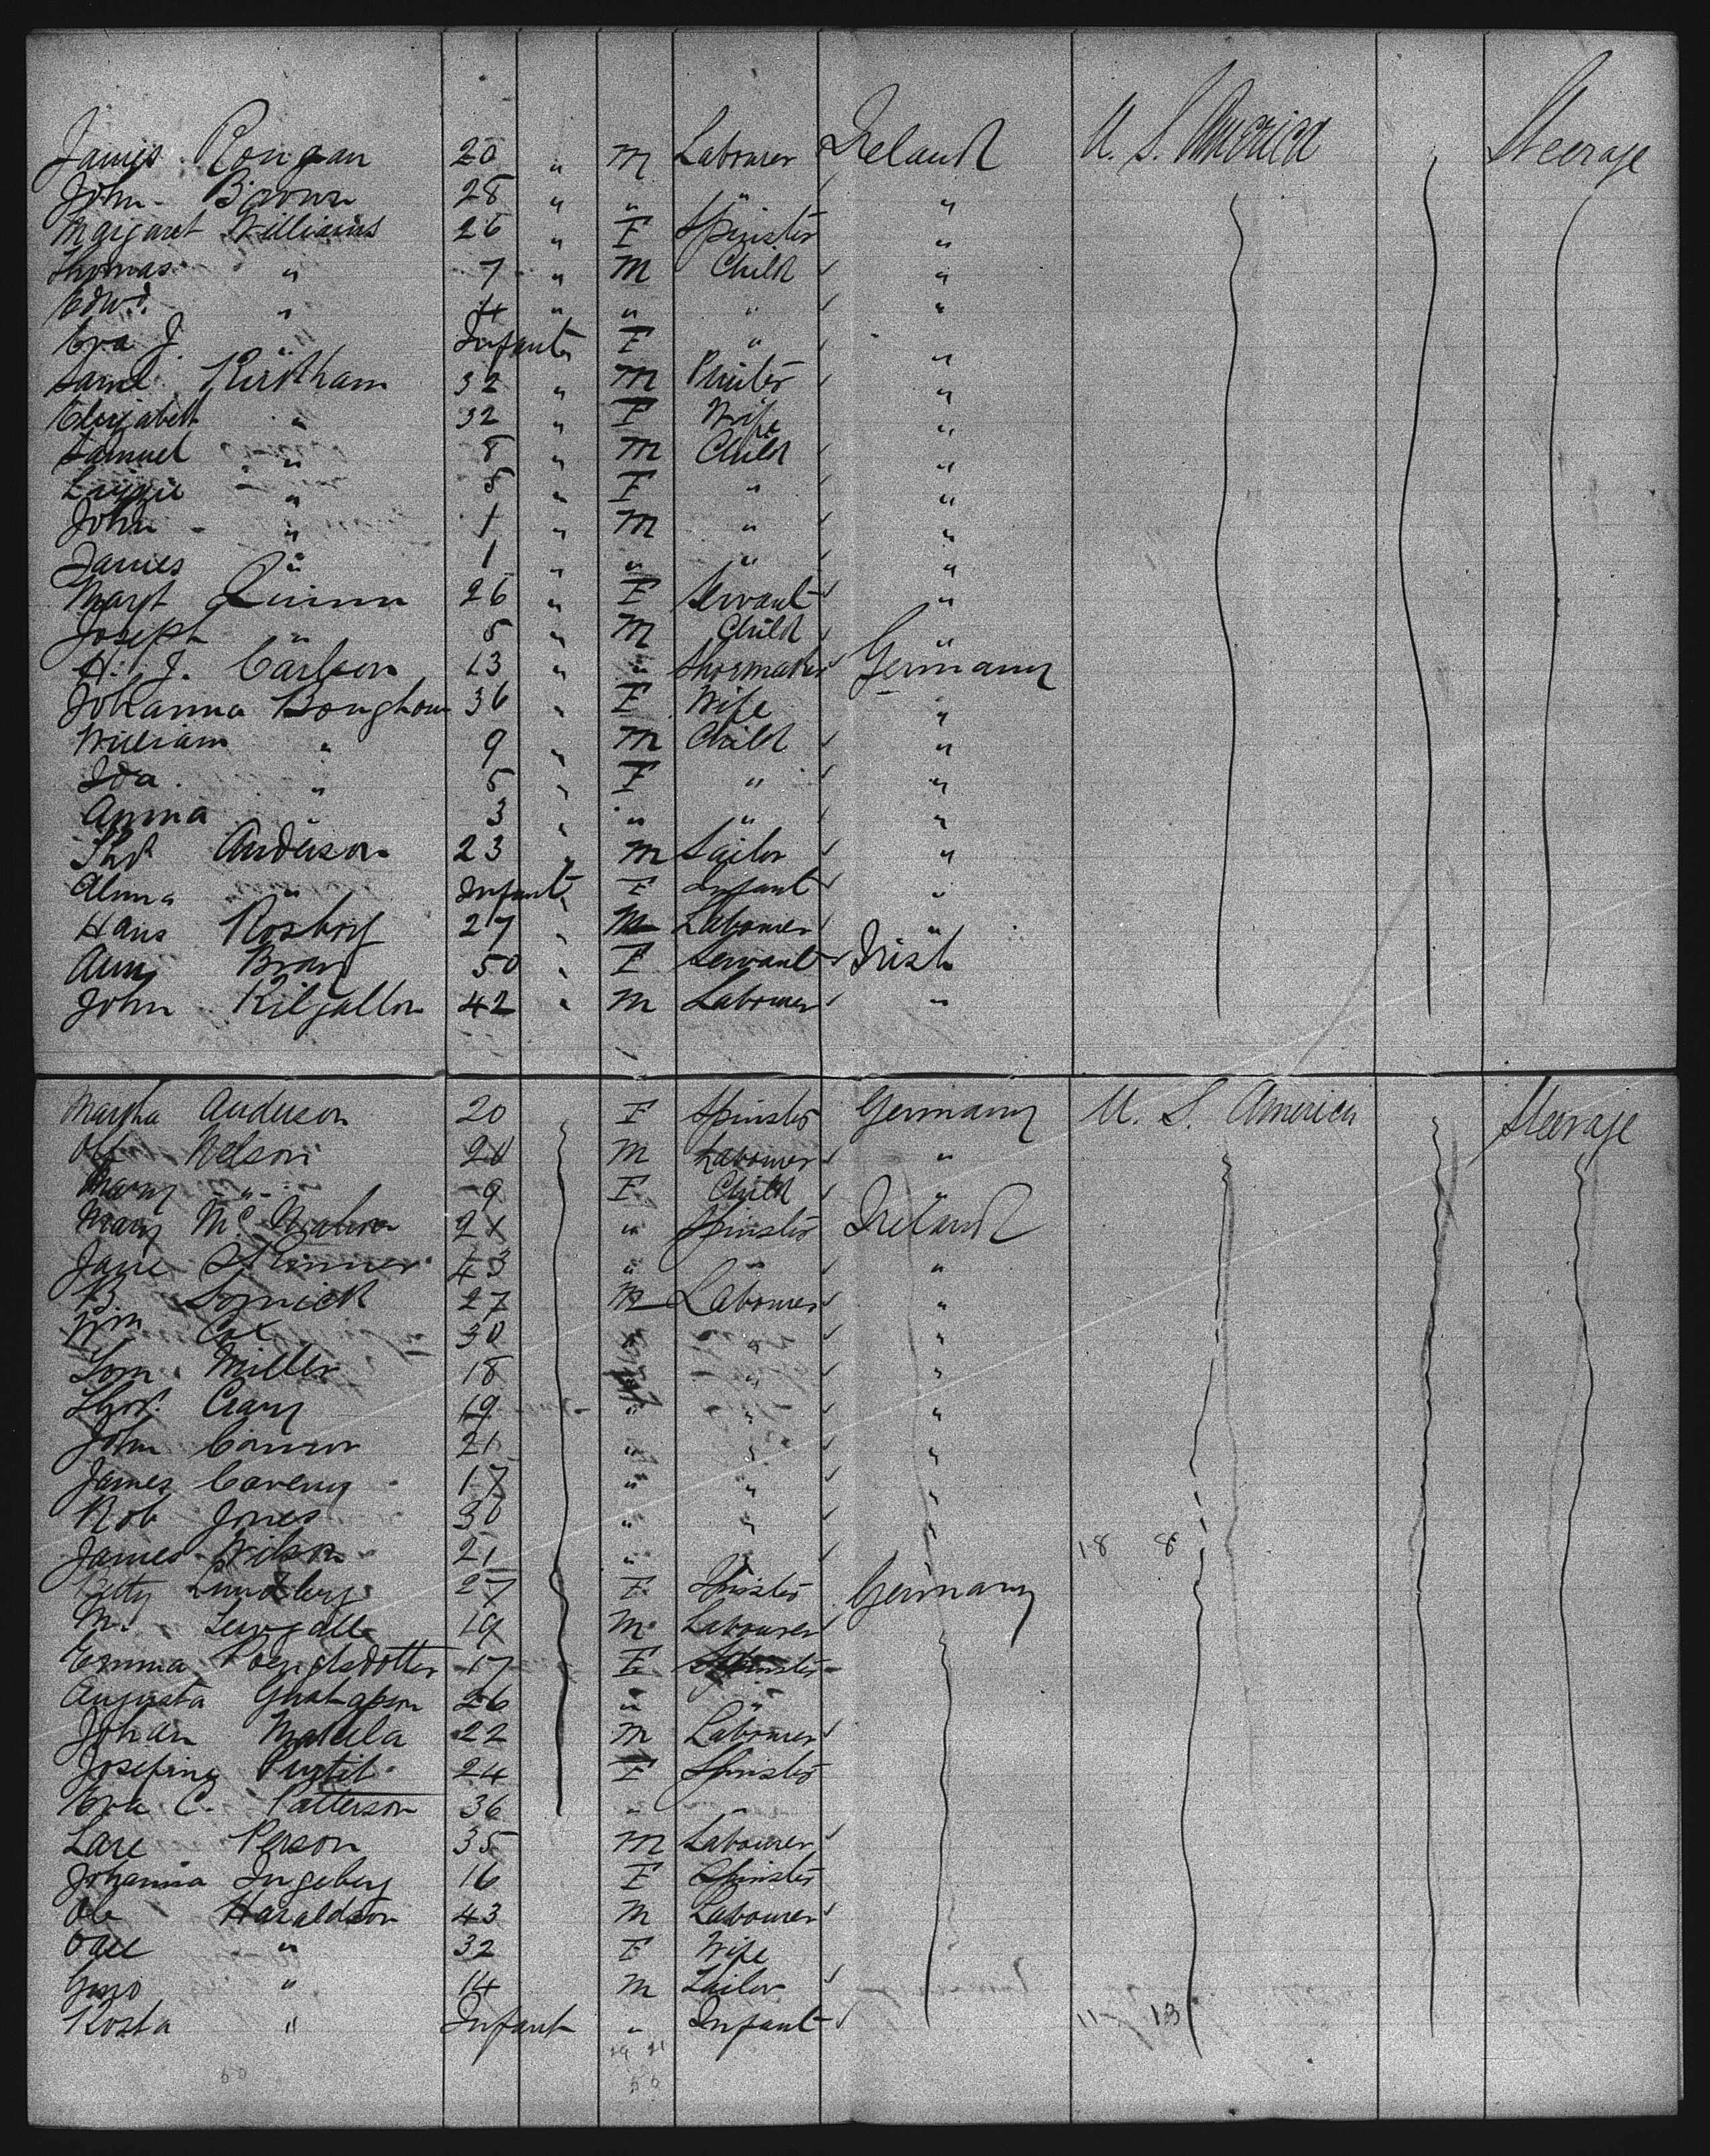 James Rongan 20 " M Labourer Ireland U. S. America Steerage
John Brown 28 " " " "
Margaret Williams 26 " F Spinster "
Thomas " 7 " M Child "
Edwd. " 4 " " " "
Eva J. " Infant " F " "
Saml Kirkham 32 " M Printer "
Elizabeth " 32 " F Wife "
Samuel " 8 " M Child "
Lizzie " 5 " F " "
John " 1 " M " "
James " 1 " " " "
Margt Quinn 26 " F Servant "
Joseph " 5 " M Child "
H. J. Carlson 23 " " Shoemaker Germany
Johanna 36 " F Wife "
William " 9 " M Child "
Ida " 5 " F " "
Anna " 3 " " " "
Thos Anderson 23 " M Sailor "
Alma " Infant " F Infant "
Hans 27 " M Labourer "
Ann Bray 50 " F Servant Irish
John Kilgallon 42 " M Labourer "
Martha Anderson 20 F Spinster Germany U. S. America Steerage
Nelson 20 M Labourer "
Mary " 9 F Child "
Mary Mc Mahon 21 " Spinster Ireland
Jane Skinner 43 " " "
27 M Labourer "
Wm Cox 30 " " "
Tom Miller 18 " " "
Thos. 19 " " "
John Connor 21 " " "
James Caveny 17 " " "
Rob Jones 30 " " "
James Wilson 21 " " " 18 8
Lundberg 27 F Spinster Germany
19 M Labourer
Emma 17 F Spinster
Augusta 26 " "
Johan Matila 22 M Labourer
Josefina 24 F Spinster
Eva C. Patterson 36 " "
Lare Person 35 M Labourer
Johanna Ingeberg 16 F Spinster
Ole Haraldson 43 M Labourer
" 32 F Wife
" 14 M Tailor
Kosta " Infant " Infant 11 13
29 21
50 50